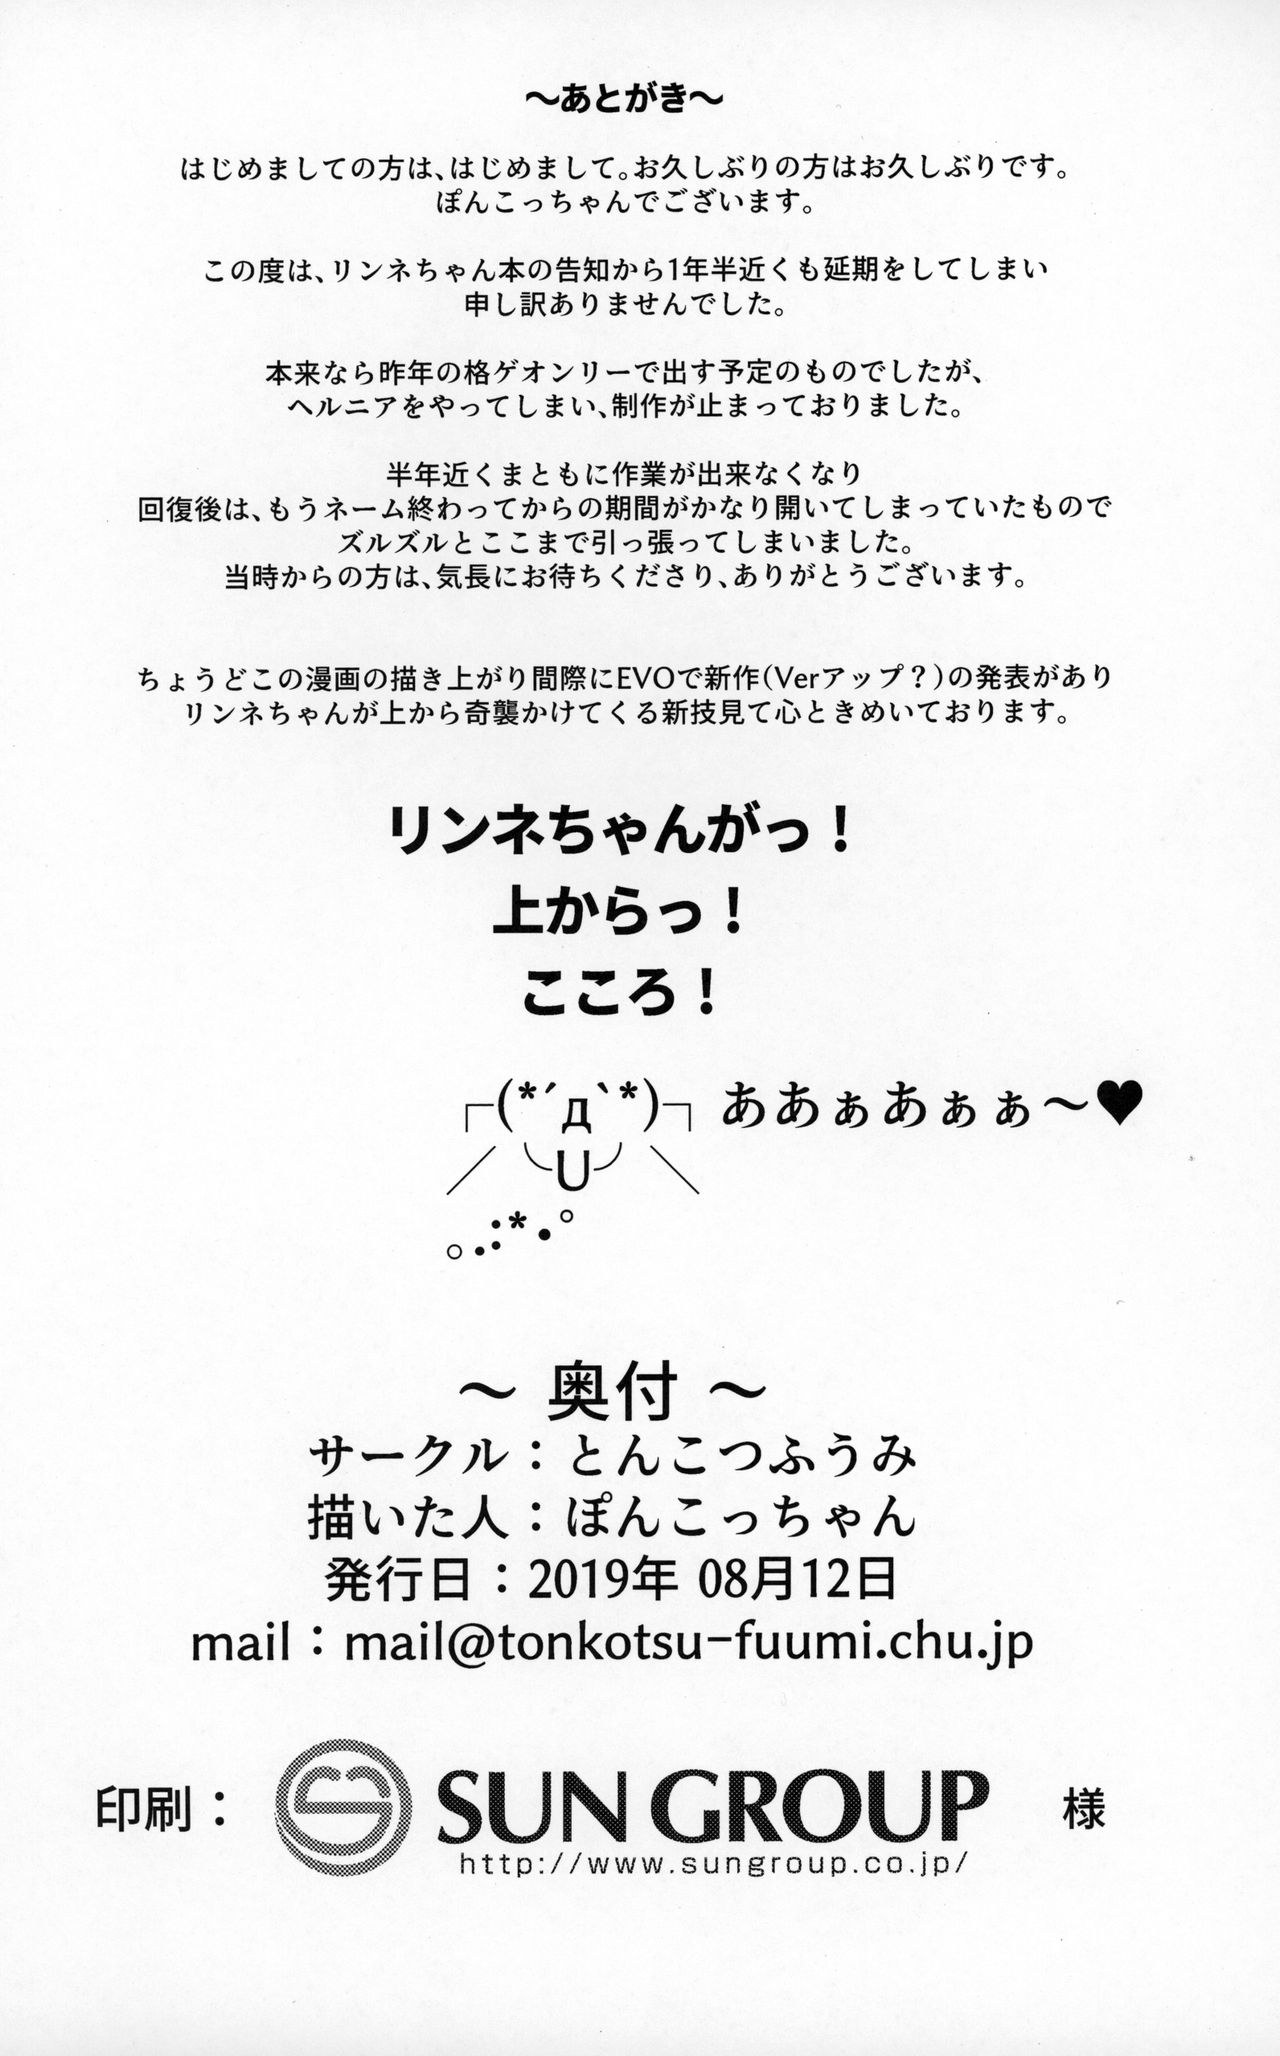 ～あとがき～
はじめましての方は、はじめまして。お久しぶりの方はお久しぶりです。
ぽんこっちゃんでございます。
この度は、リンネちゃん本の告知から1年半近くも延期をしてしまい
申し訳ありませんでした。
本来なら昨年の格ゲオンリーで出す予定のものでしたが、
ヘルニアをやってしまい、制作が止まっておりました。
半年近くまともに作業が出来なくなり
回復後は、もうネーム終わってからの期間がかなり開いてしまっていたもので
ズルズルとここまで引っ張ってしまいました。
当時からの方は、気長にお待ちくださり、ありがとうございます。
ちょうどこの漫画の描き上がり間際にEVOで新作(Verアップ？)の発表があり
リンネちゃんが上から奇襲かけてくる新技見て心ときめいております。
リンネちゃんがっ！
上からっ！
こころ！
┌(*´д`*)┐ああぁあぁぁ～♥
／╰U╯＼
｡.:*•°
～ 奥付 ～
サークル：とんこつふうみ
描いた人：ぽんこっちゃん
発行日：2019年 08月12日
mail：mail@tonkotsu-fuumi.chu.jp
印刷： SUN GROUP 様
http://www.sungroup.co.jp/